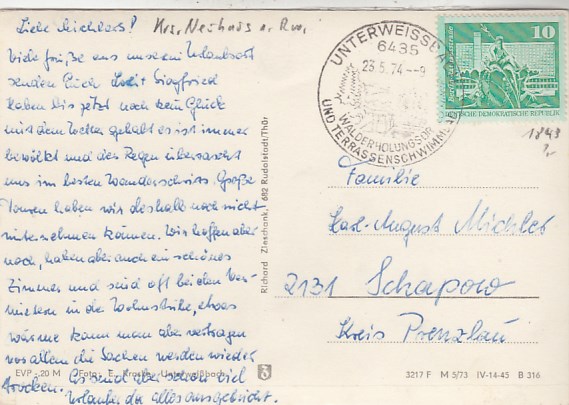 Liebe Michlers!
Krs. Neuhaus a. Rwg.
Viele Grüße aus unserem Urlaubsort
senden Euch Losit Siegfried
haben bis jetzt noch kein Glück
mit dem Wetter gehabt es ist immer
bewölkt und der Regen überrascht
uns im besten Wanderschritt. Große
Touren haben wir deshalb noch nicht
unternehmen können. Wir hoffen aber
noch, haben aber auch ein schönes
Zimmer und sind oft bei den Ver-
mietern in der Wohnstube, etwas
wärme kann man aber vertragen
vor allem die Sachen werden wieder
trocken. Es sind aber schon viel
Urlauber da alles ausgebucht.
EVP -.20 M Foto: E. Kroske, Unterweißbach
Richard Zieschank, 682 Rudolstadt/Thür
UNTERWEISSBACH
6435
23.5.74--9
WALDERHOLUNGSORT
UND TERRASSENSCHWIMMBAD
10
DEUTSCHE DEMOKRATISCHE REPUBLIK
1843
Familie
Karl-August Michler
2131 Schapow
Kreis Prenzlau
3217 F M 5/73 IV-14-45 B 316